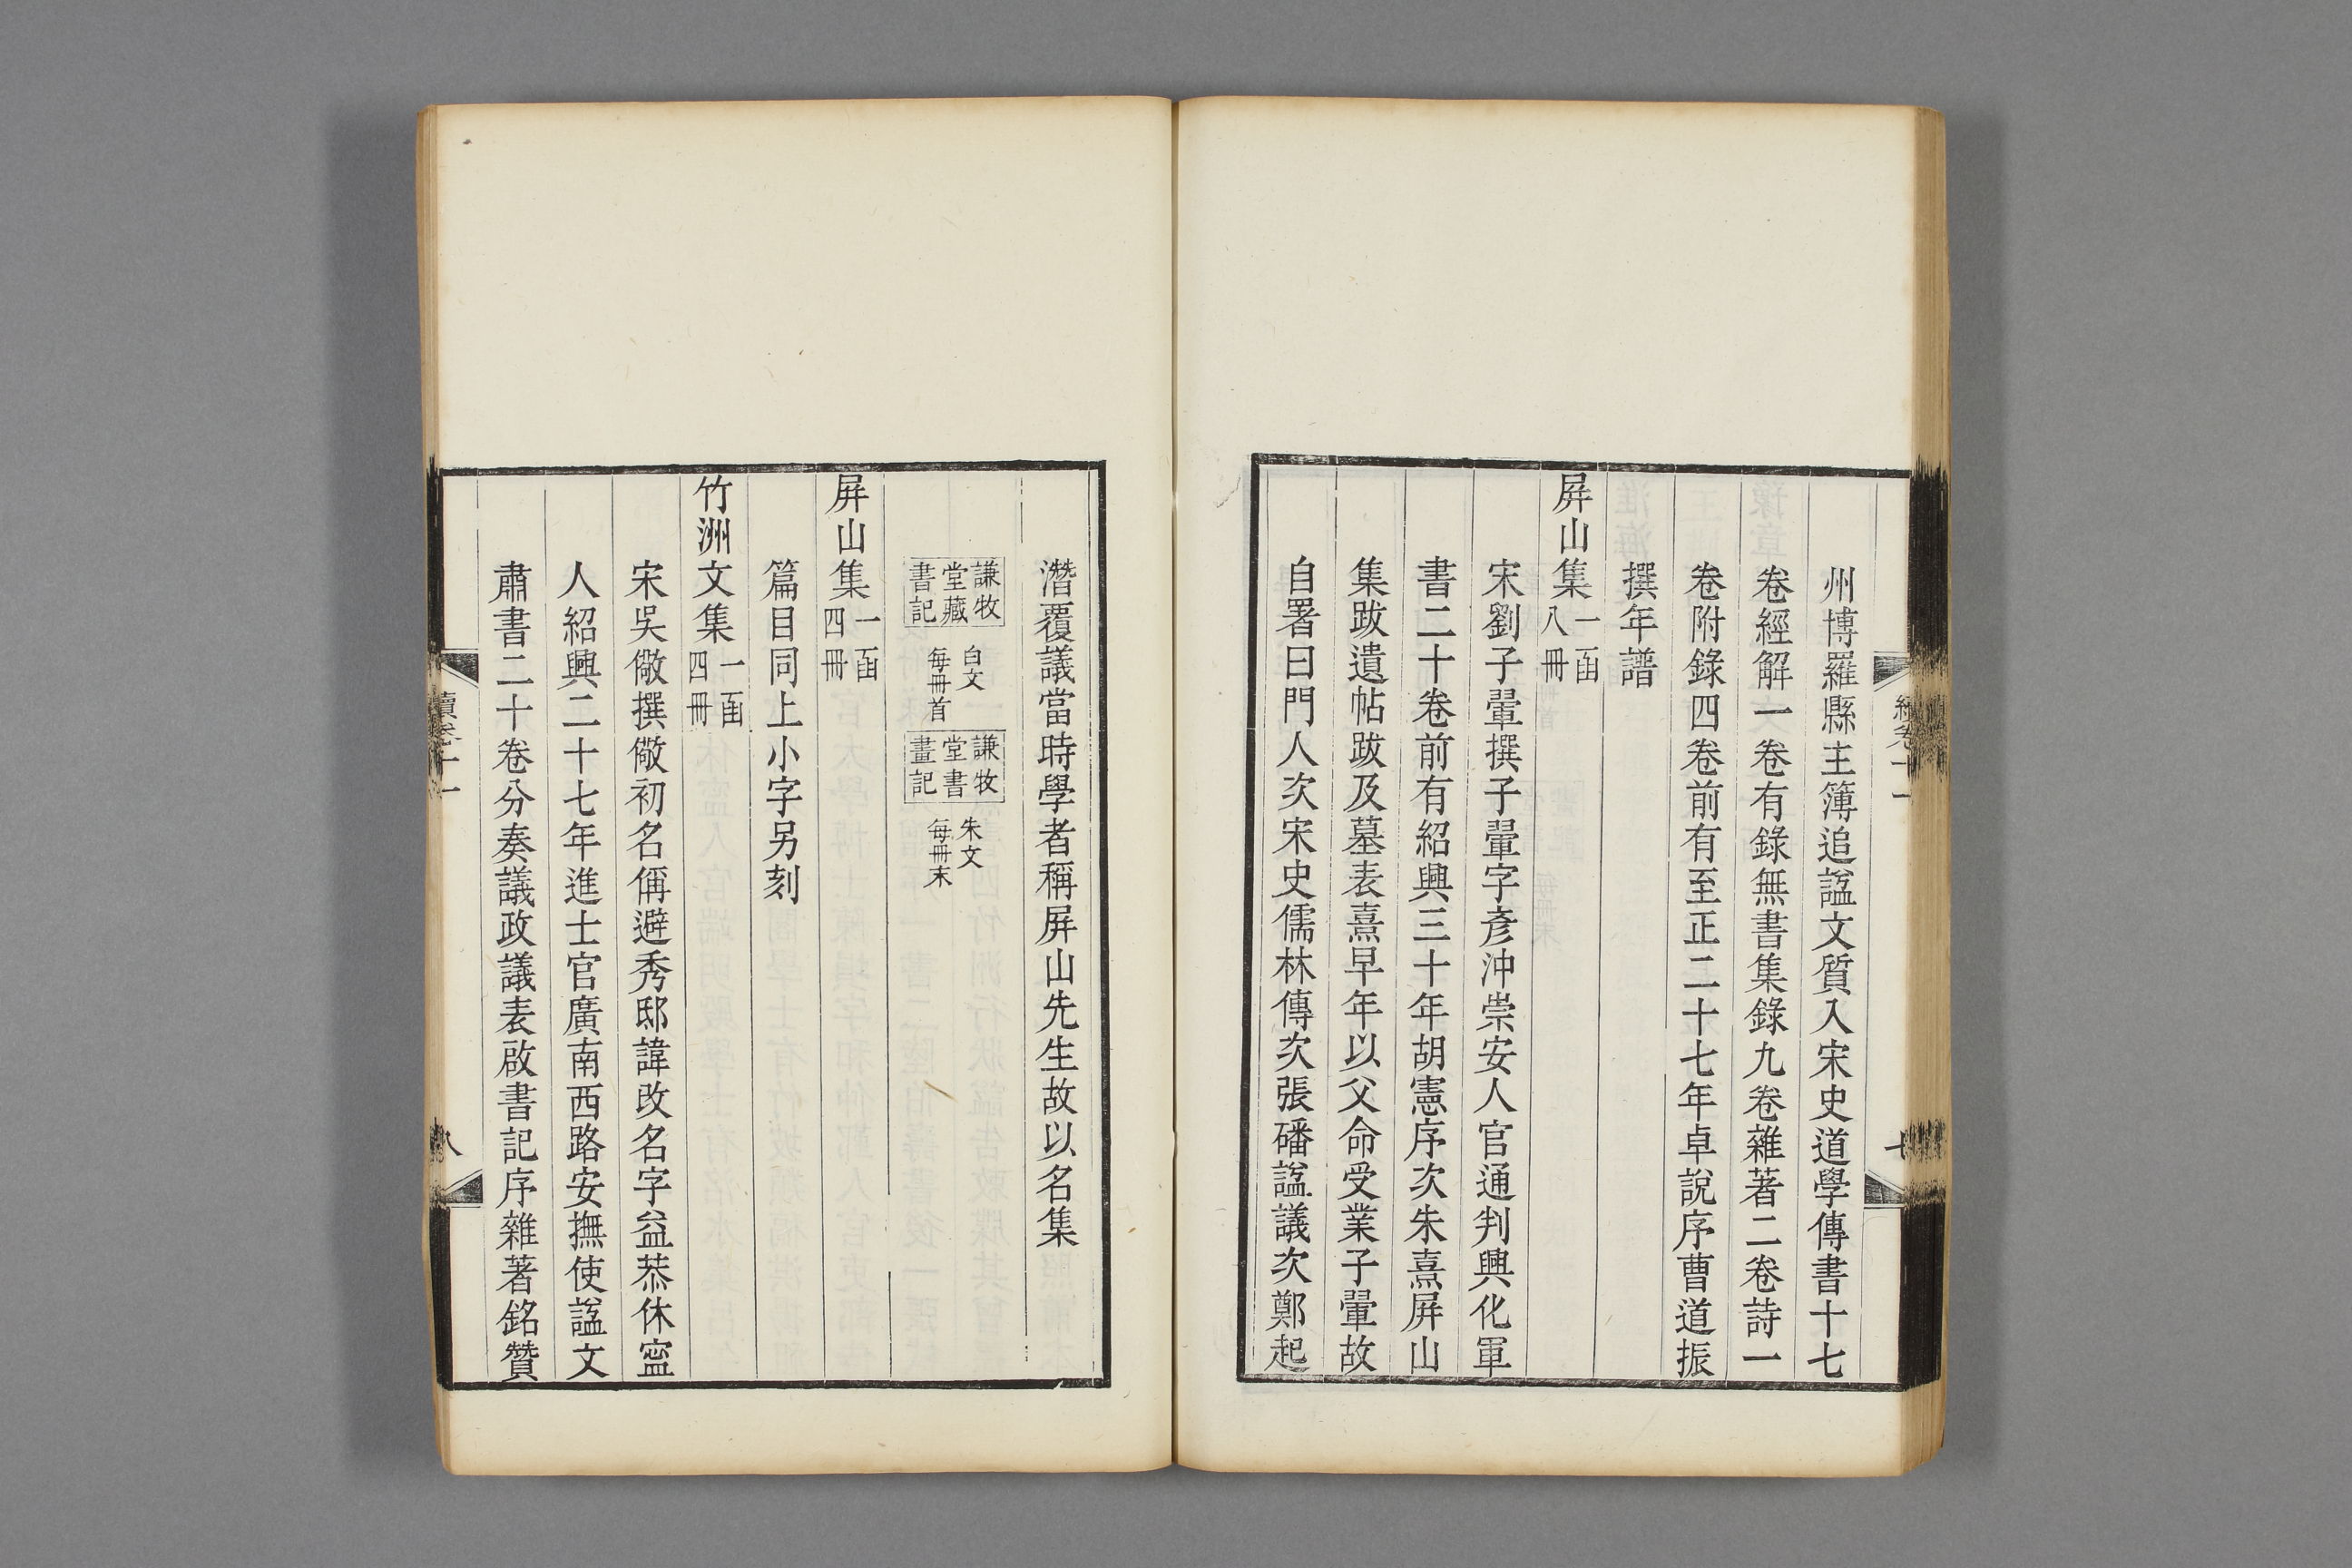 州博羅縣主簿追諡文質入宋史道學傳書十七
卷經解一卷有錄無書集錄九卷雜著二卷詩一
卷附錄四卷前有至正二十七年卓說序曹道振
撰年譜
屛山集一函八冊
宋劉子翬撰子翬字彥沖崇安人官通判興化軍
書二十卷前有紹興三十年胡憲序次朱熹屛山
集跋遺帖跋及墓表熹早年以父命受業子翬故
自署曰門人次宋史儒林傳次張磻諡議次鄭起
續卷十一
七
潛覆議當時學者稱屛山先生故以名集
謙牧堂藏書記 白文每冊首 謙牧堂書畫記 朱文每冊末
屛山集一函四冊
篇目同上小字另刻
竹洲文集一函四冊
宋吳儆撰儆初名偁避秀邸諱改名字益恭休寍
人紹興二十七年進士官廣南西路安撫使諡文
肅書二十卷分奏議政議表啟書記序雜著銘贊
續卷十一
八